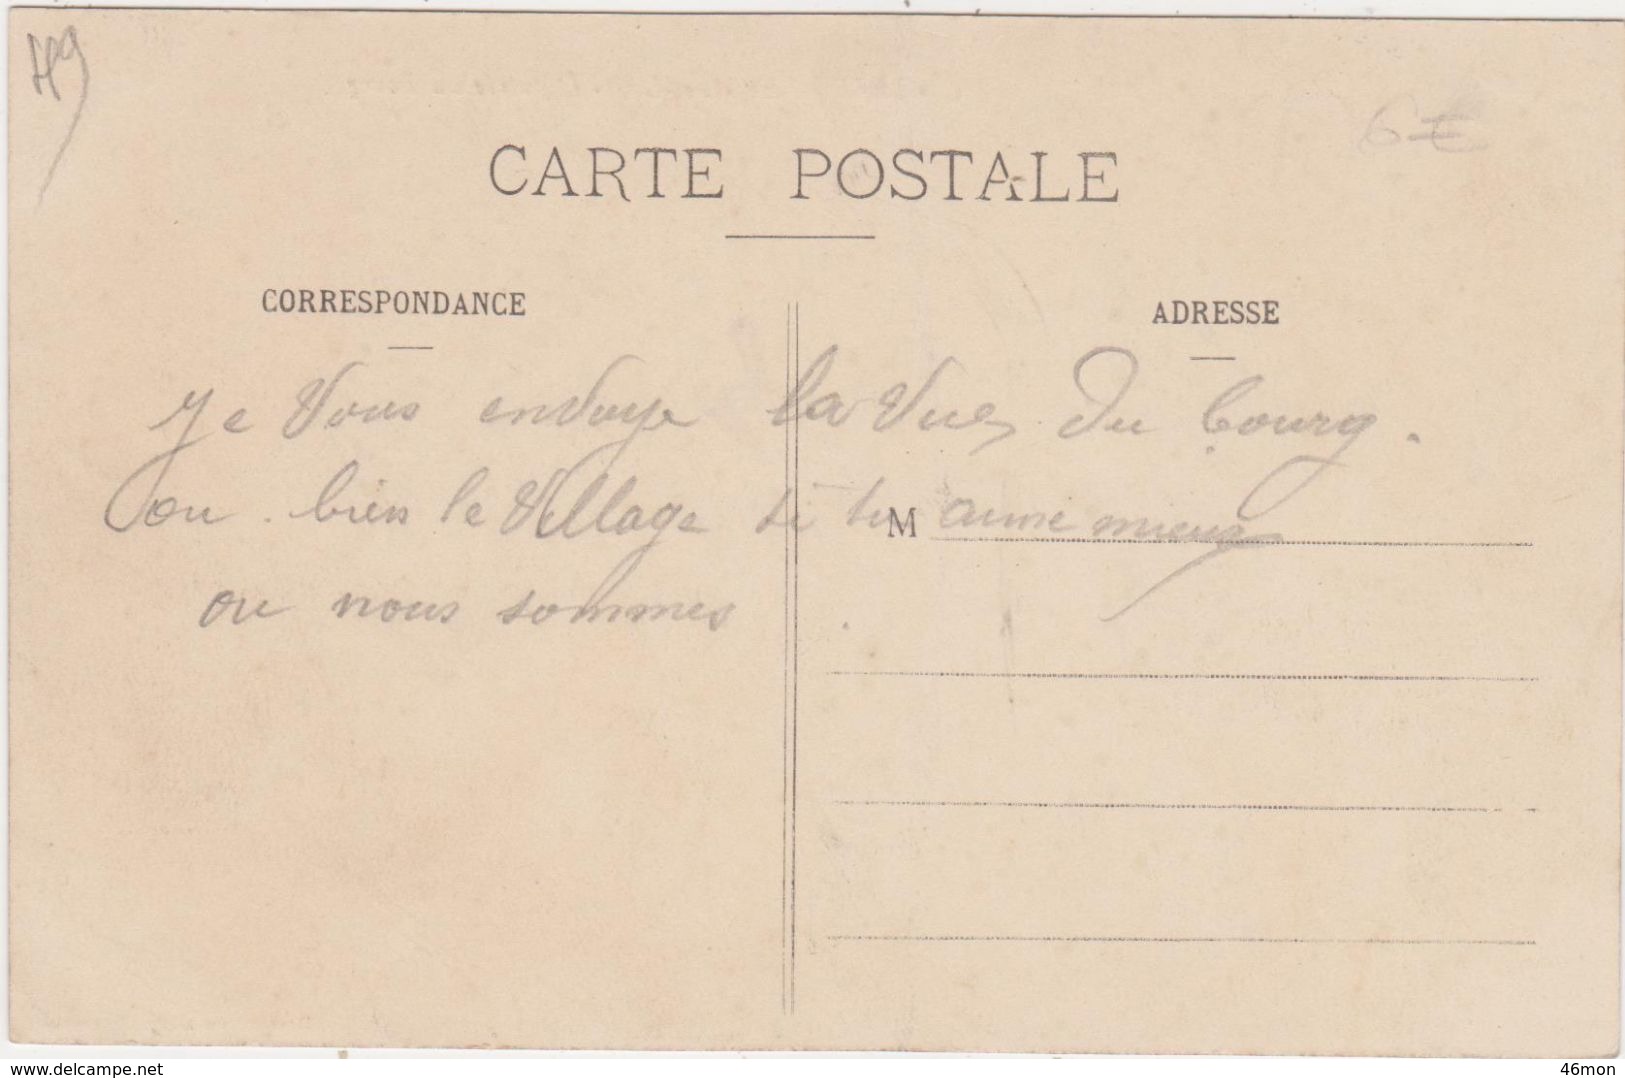 49
6€
CARTE POSTALE
CORRESPONDANCE
ADRESSE
Je Vous envoye la Vue du bourg.
ou bien le Village si tu aime mieux
M
ou nous sommes.
delcampe.net
46mon